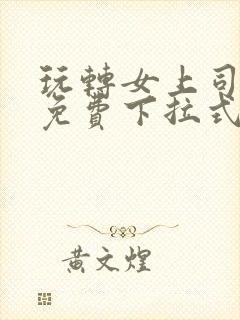 玩轉女上司
免費下拉式
黃文煌